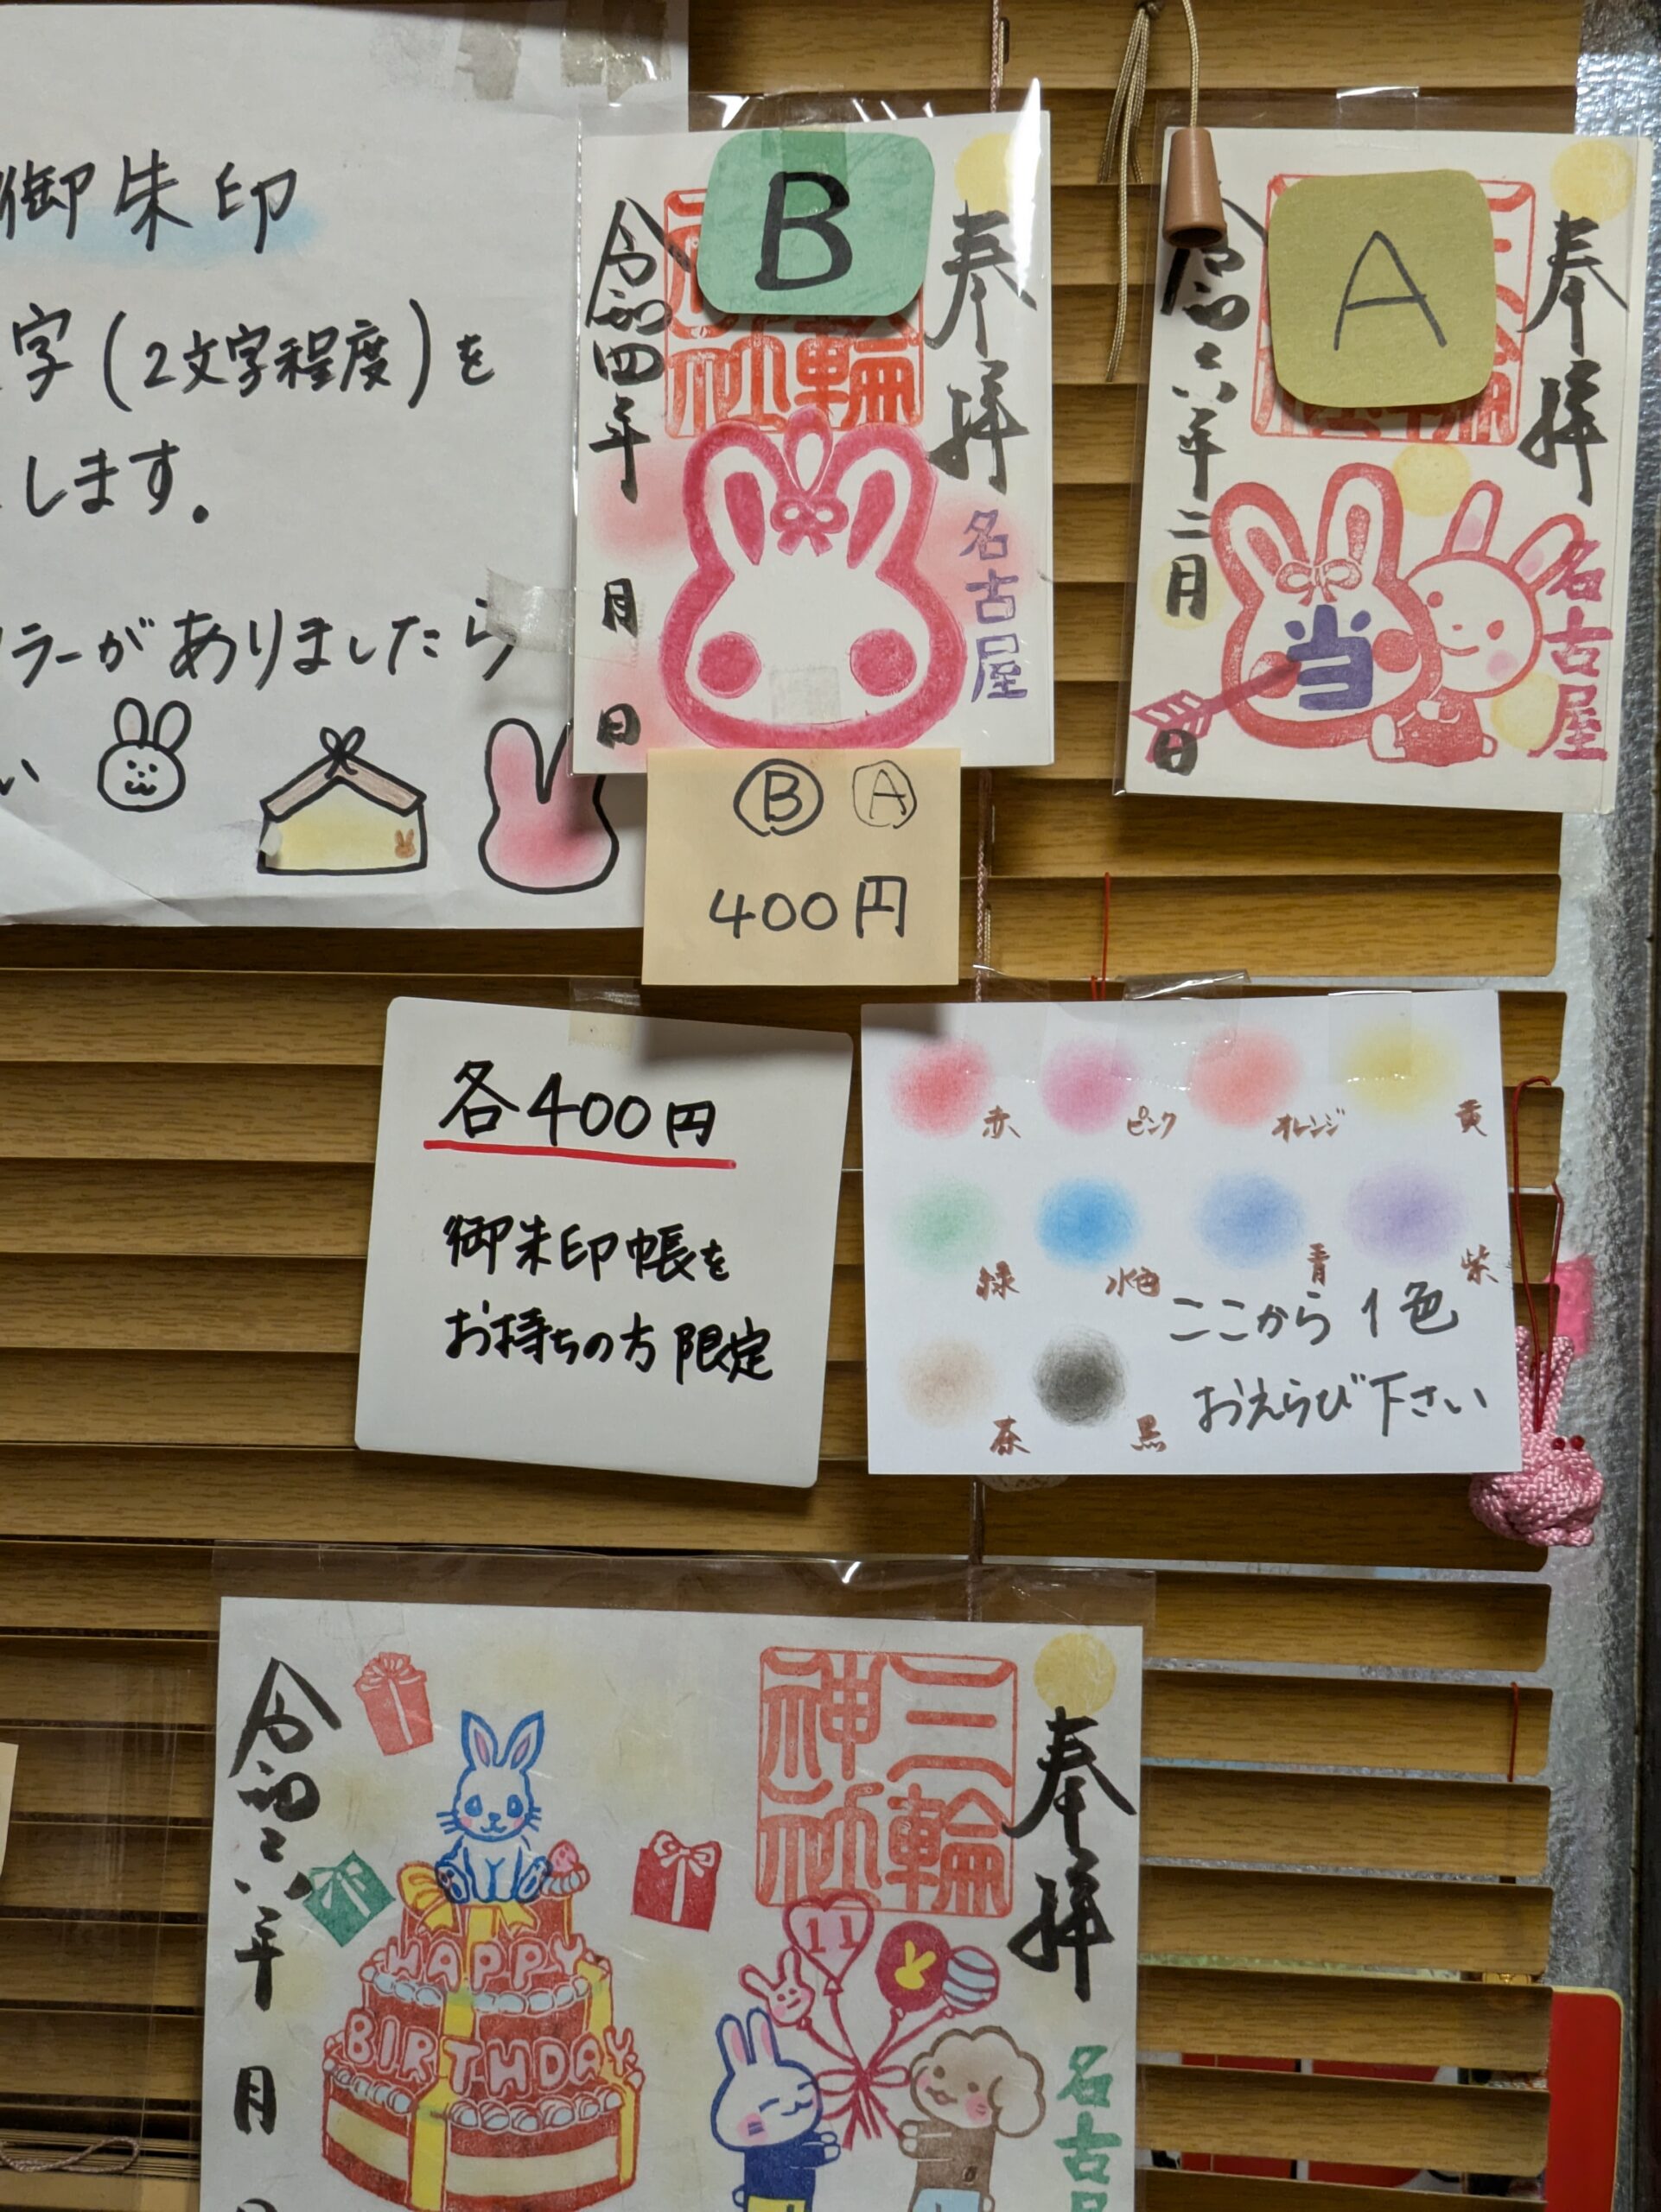 御朱印
字(2文字程度)を
します。
ラーがありましたら
い
B
奉拝
三輪神社
名古屋
令和四年 月 日
A
奉拝
名古屋
当
令和六年二月 日
Ⓑ Ⓐ
400円
各400円
御朱印帳を
お持ちの方限定
赤 ピンク オレンジ 黄
緑 水色 青 紫
茶 黒
ここから1色
おえらび下さい
奉拝
三輪
神社
名古屋
11
HAPPY
BIRTHDAY
令和六年 月